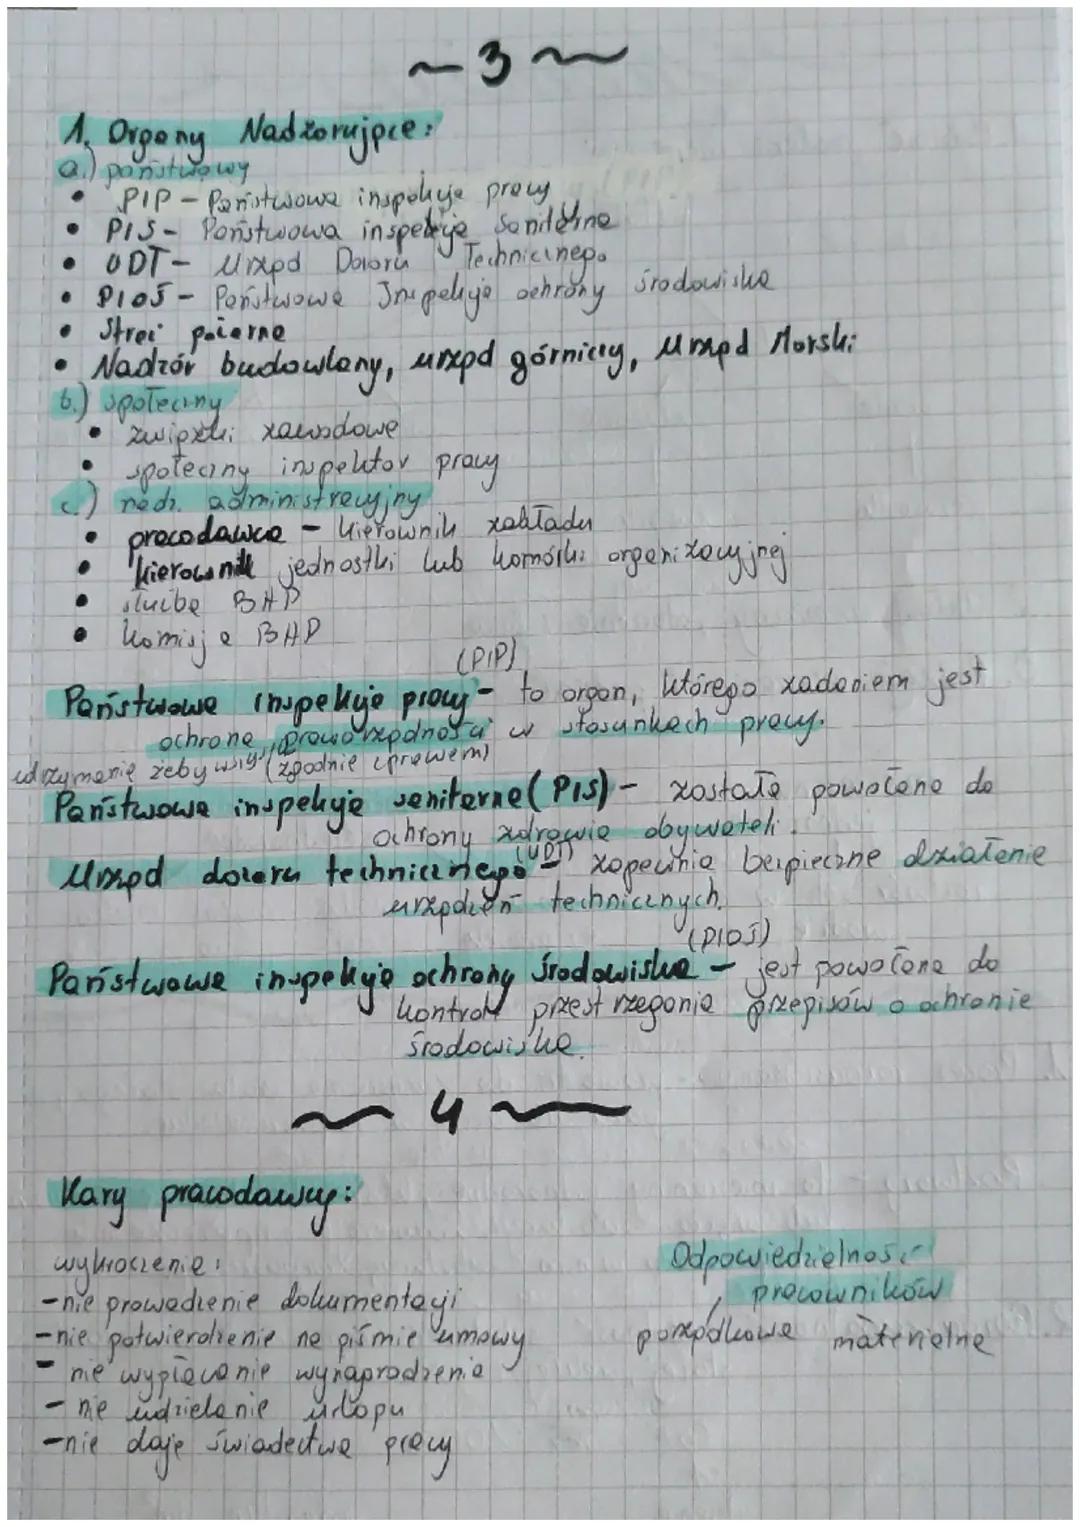 ~ 3 ~
1. Organy Nadzorujące:
a.) państwowy
• PIP - Państwowa inspekcja pracy
• PIS - Państwowa inspekcja Sanitarna
• UDT - Urząd Dozoru Technicznego
• PIOŚ - Państwowa Inspekcja ochrony środowiska
• Straż pożarna
• Nadzór budowlany, urząd górniczy, Urząd Morski
b.) społeczny
• związki zawodowe
• społeczny inspektor pracy
c.) nadz. administracyjny
• pracodawca - kierownik zakładu
• kierownik jednostki lub komórki organizacyjnej
• służba BHP
• komisja BHP
(PIP)
Państwowa inspekcja pracy - to organ, którego zadaniem jest
ochrona praworządności w stosunkach pracy.
utrzymanie żeby (zgodnie z prawem)
Państwowa inspekcja sanitarna (PIS) - została powołana do
ochrony zdrowia obywateli.
(UDT)
Urząd dozoru technicznego - zapewnia bezpieczne działanie
urządzeń technicznych.
(PIOŚ)
Państwowa inspekcja ochrony środowiska - jest powołana do
kontroli przestrzegania przepisów o ochronie
środowiska.
~ 4 ~
Kary pracodawcy:
wykroczenia:
- nie prowadzenie dokumentacji
- nie potwierdzenie na piśmie umowy
- nie wypłacanie wynagrodzenia
- nie udzielanie urlopu
- nie daje świadectwa pracy
Odpowiedzialność
pracowników
porządkowa materialna